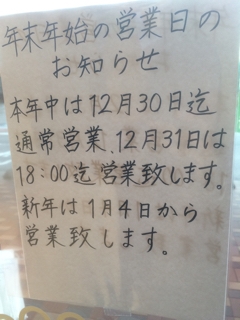 年末年始の営業日の
お知らせ
本年中は12月30日迄
通常営業、12月31日は
18:00迄営業致します。
新年は1月4日から
営業致します。